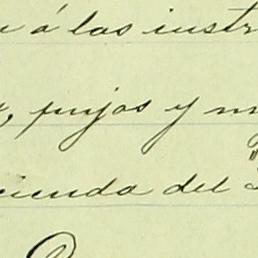 á las instr
pujos y m
cienda del